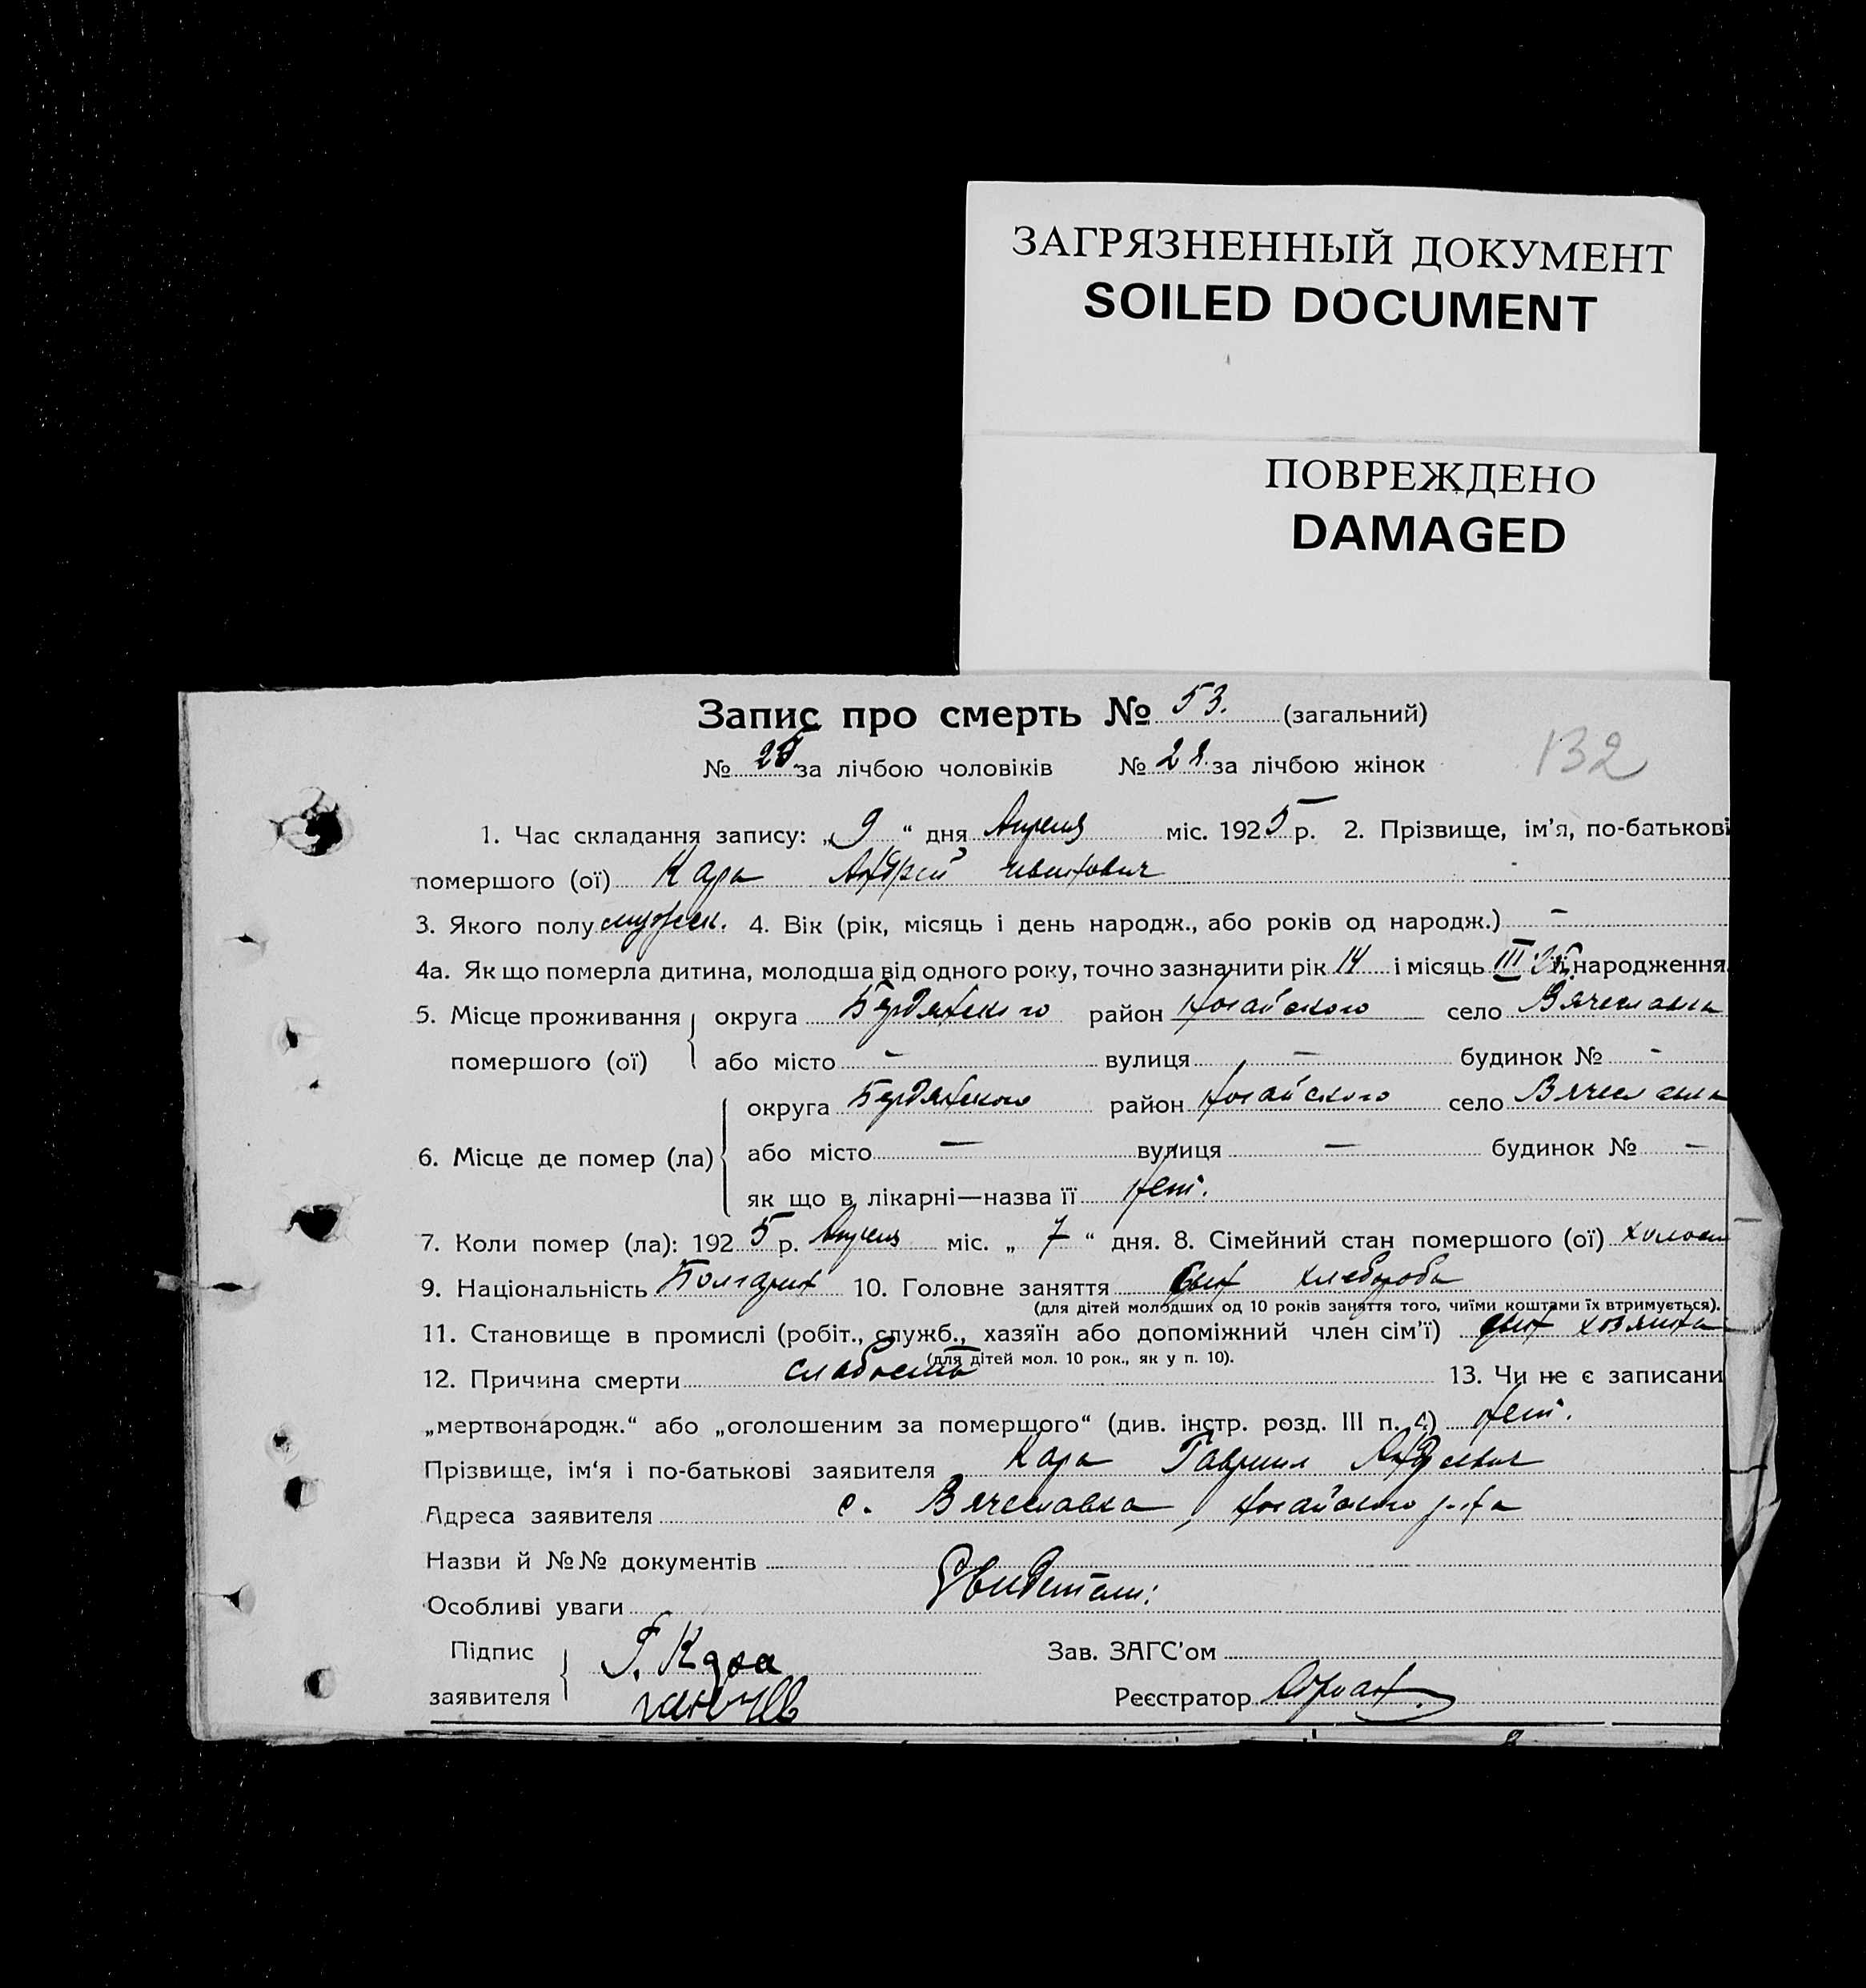 ЗАГРЯЗНЕННЫЙ ДОКУМЕНТ
SOILED DOCUMENT
ПОВРЕЖДЕНО
DAMAGED
Запис про смерть № 53. (загальний)
№ 25 за лічбою чоловіків № 28. за лічбою жінок
132
1. Час складання запису: „9“ дня Апреля міс. 1925 р. 2. Прізвище, ім'я, по-батькові
помершого (ої) Кара Андрей Иванович
3. Якого полу мужск. 4. Вік (рік, місяць і день народж., або років од народж.) –
4а. Як що померла дитина, молодша від одного року, точно зазначити рік 14 і місяць III народження
5. Місце проживання округа Бердянского район Ногайского село Вячеславка
помершого (ої) або місто – вулиця – будинок № -
округа Бердянского район Ногайского село Вячеславка
6. Місце де помер (ла) або місто – вулиця – будинок № –
як що в лікарні—назва її Нет.
7. Коли помер (ла): 1925 р. Апреля міс. „7“ дня. 8. Сімейний стан помершого (ої) холост
9. Національність Болгарин 10. Головне заняття сын хлебороба
(для дітей молодших од 10 років заняття того, чиїми коштами їх втримується).
11. Становище в промислі (робіт., служб., хазяїн або допоміжний член сім'ї) сын хозяина
(для дітей мол. 10 рок., як у п. 10).
12. Причина смерти слабость 13. Чи не є записани
„мертвонародж.“ або „оголошеним за помершого“ (див. інстр. розд. III п. 4) Нет.
Прізвище, ім'я і по-батькові заявителя Кара Гавриил
Адреса заявителя с. Вячеславка, Ногайского р-на
Назви й №№ документів
Особливі уваги Свидетели:
Підпис Г. Кара Зав. ЗАГС'ом
заявителя Реєстратор